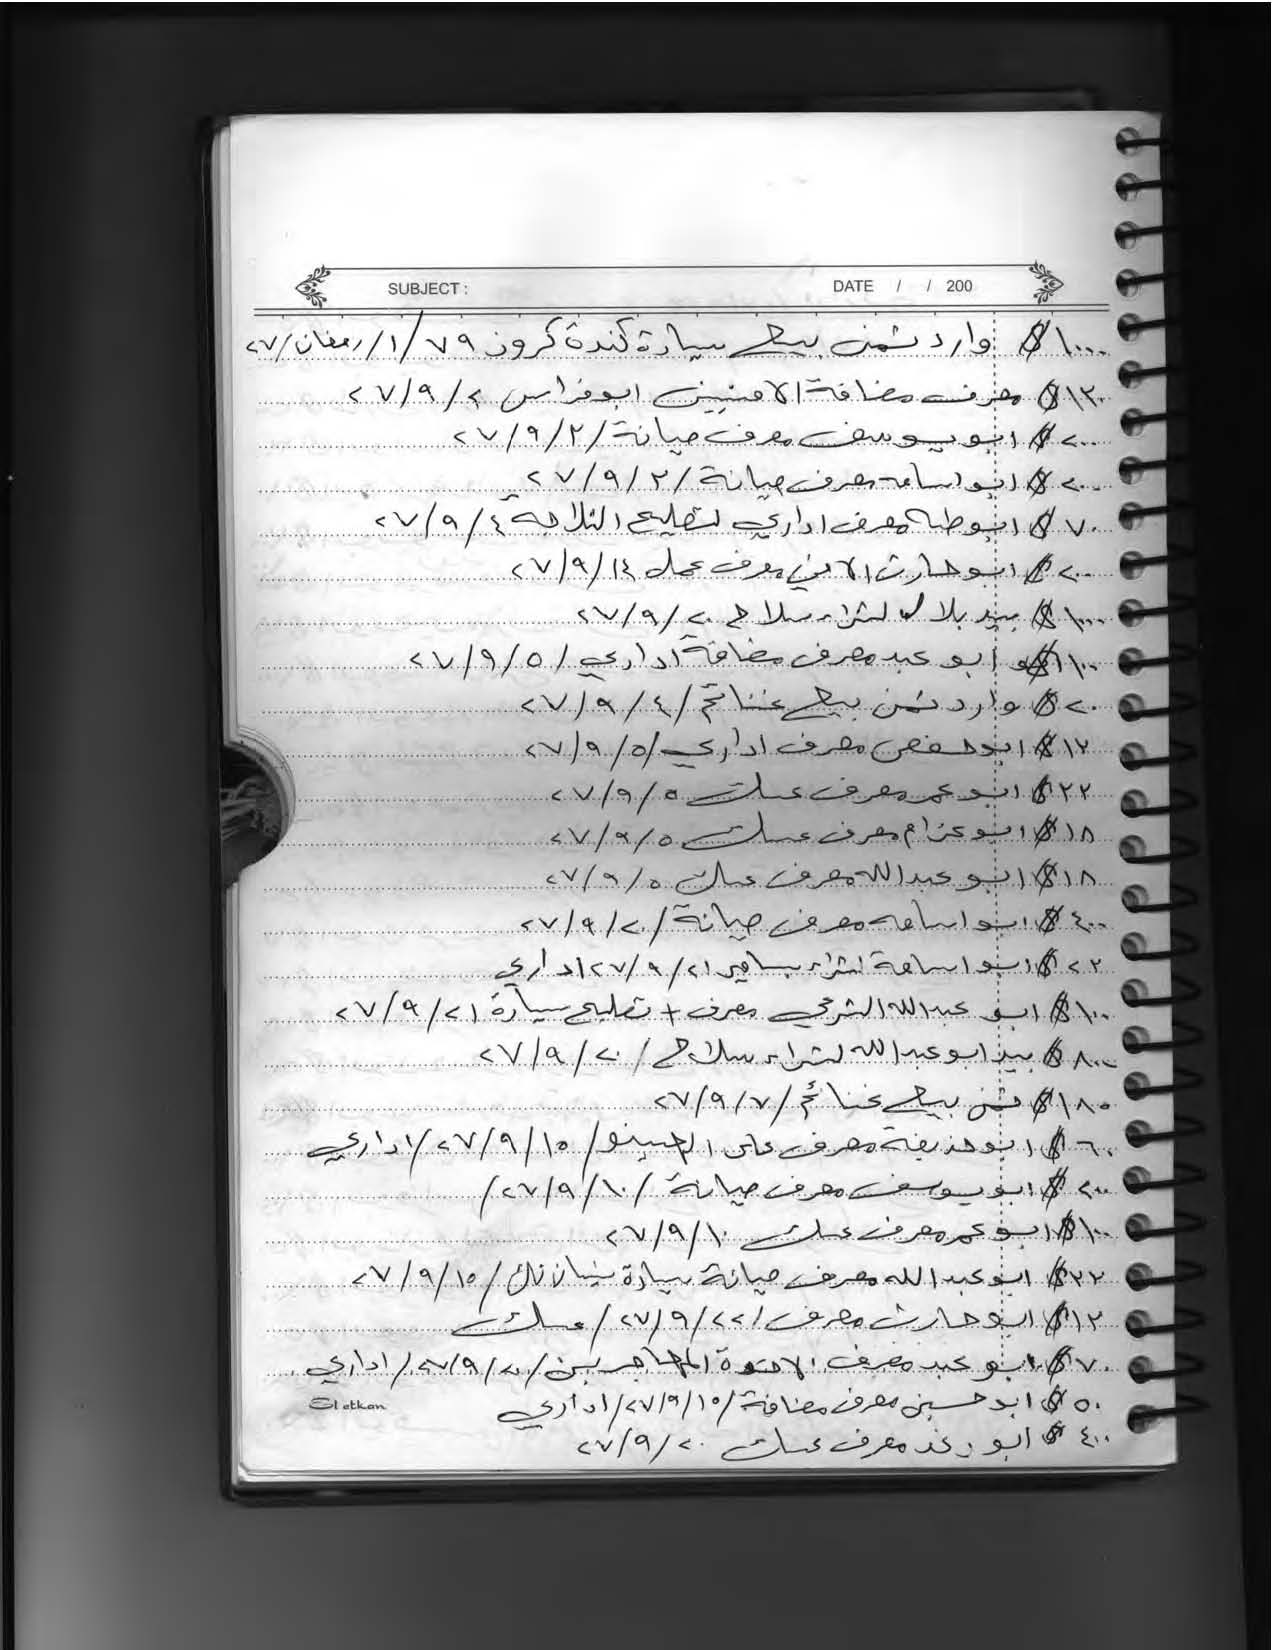 SUBJECT : DATE / / 200
١٠٠٠٠ $ وارد ثمن بيع سيارة كندة كروز ٧٩ / ١ / رمضان / ٢٧
١٣٠ $ مصرف مضافة الامنيين ابو فراس ٢ / ٩ / ٢٧
٢٠٠ $ ابو يوسف مصرف صيانة / ٢ / ٩ / ٢٧
٢٠٠ $ ابو اسامه مصرف صيانة / ٢ / ٩ / ٢٧
٧٠ $ ابو طه مصرف اداري لتصليح الثلاجة ٤ / ٩ / ٢٧
٢٠٠ $ ابو حارث الامني مصرف عمل ١٤ / ٩ / ٢٧
١٠٠٠ $ بيد بلال لشراء سلاح ٢٠ / ٩ / ٢٧
١٠٠ $ ابو عبد مصرف مضافة اداري / ٥ / ٩ / ٢٧
٢٠ $ وارد ثمن بيع غنائم / ٤ / ٩ / ٢٧
١٢ $ ابو حفص مصرف اداري / ٥ / ٩ / ٢٧
٢٢ $ ابو عمر مصرف عسكري ٥ / ٩ / ٢٧
١٨ $ ابو عزام مصرف عسكري ٥ / ٩ / ٢٧
١٨ $ ابو عبد الله مصرف عسكري ٥ / ٩ / ٢٧
٤٠٠ $ ابو اسامه مصرف صيانة / ٢٠ / ٩ / ٢٧
٢٢ $ ابو اسامة لشراء ٢١ / ٩ / ٢٧ اداري
١٠٠ $ ابو عبد الله الشرعي مصرف + تصليح سيارة ٢١ / ٩ / ٢٧
٨٠٠ $ بيد ابو عبد الله لشراء سلاح / ٢٠ / ٩ / ٢٧
١٨٥ $ ثمن بيع غنائم / ٧ / ٩ / ٢٧
٦٠ $ ابو حذيفة مصرف على / ١٥ / ٩ / ٢٧ / اداري
٢٠٠ $ ابو يوسف مصرف صيانة / ١٠ / ٩ / ٢٧ /
١٠٠ $ ابو عمر مصرف عسكري ١٠ / ٩ / ٢٧
٢٢ $ ابو عبد الله مصرف صيانة سيارة / ١٥ / ٩ / ٢٧
١٢ $ ابو حارث مصرف / ٢٢ / ٩ / ٢٧ / عسكري
٧٠ $ ابو عبد مصرف الاخوة المهاجرين / ٢٠ / ٩ / ٢٧ / اداري
٥٠ $ ابو حسين مصرف مضافة / ١٥ / ٩ / ٢٧ / اداري
Elatkan
٤٠٠ $ ابو رغد مصرف عسكري ٢٠ / ٩ / ٢٧